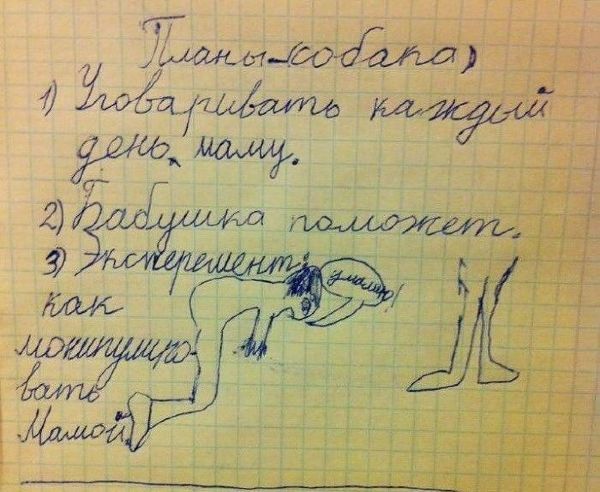 Планы (собака)
1) Уговаривать каждый
день маму.
2) Бабушка поможет.
3) Эксперемент:
умаляю!
как
монипулиро-
вать
Мамой.